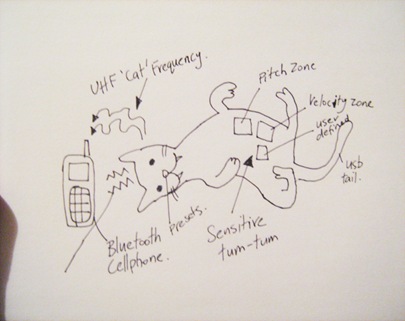 UHF 'Cat' Frequency.
Pitch Zone
Velocity Zone
user
defined
usb
tail.
Bluetooth
Cellphone.
Presets.
Sensitive
tum-tum